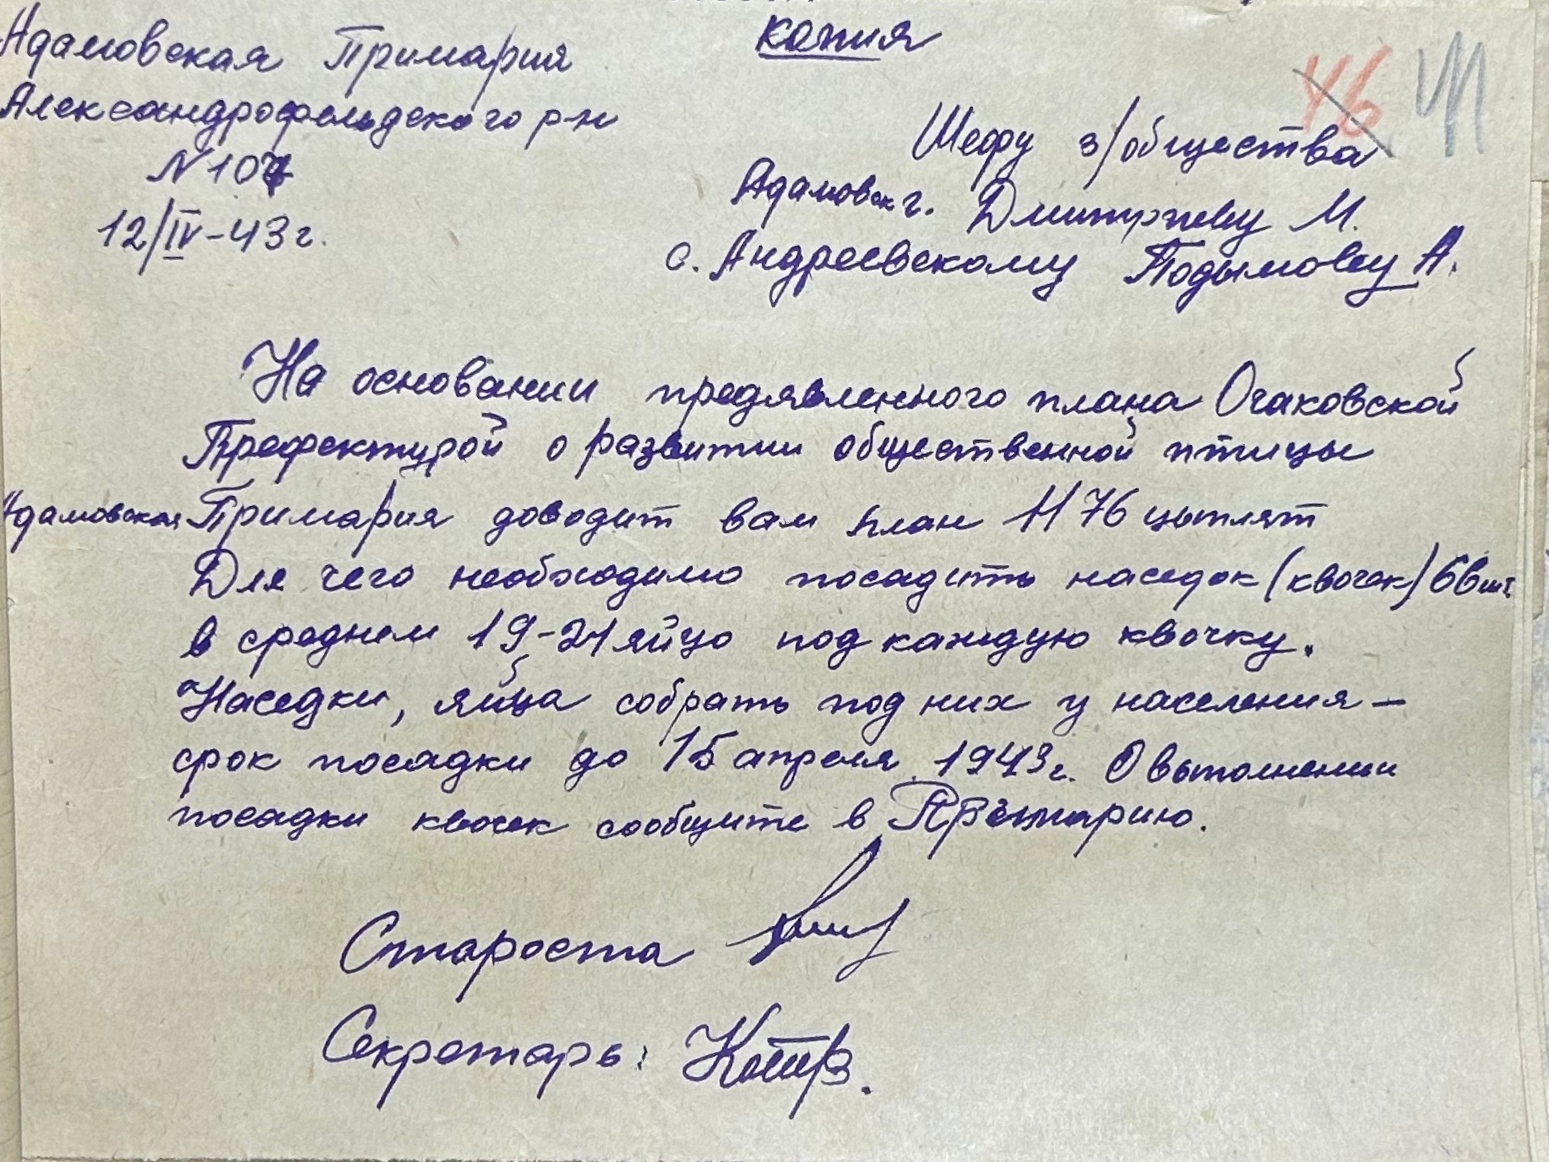 копия
Адамовская Примария
Александрофельдского р-н
N 107
12/IV-43 г.
46
Шефу з/общества
Адамовск г. Дмитриеву М.
с. Андреевскому Подымовву А.
На основании предявленного плана Очаковской
Префектурой о развитии общественной птицы
Адамовская Примария доводит вам план 1176 цыплят
Для чего необходимо посадить наседок (квочек) 66 шт.
в среднем 19-21 яйцо под каждую квочку.
Наседки, яйца собрать под них у населения –
срок посадки до 15 апреля 1943 г. О выполнении
посадки квочек сообщите в Примарию.
Староста
Секретарь: